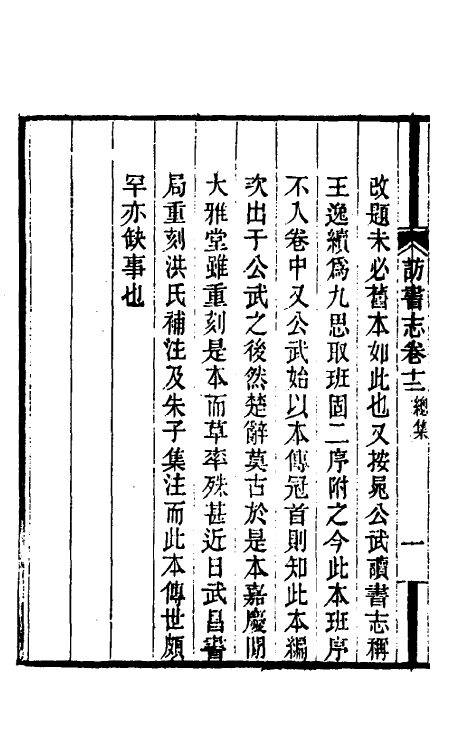 訪書志卷十二 總集 一
改題未必舊本如此也又按晁公武讀書志稱
王逸續爲九思取班固二序附之今此本班序
不入卷中又公武始以本傳冠首則知此本編
次出于公武之後然楚辭莫古於是本嘉慶間
大雅堂雖重刻是本而草率殊甚近日武昌書
局重刻洪氏補注及朱子集注而此本傳世頗
罕亦缺事也